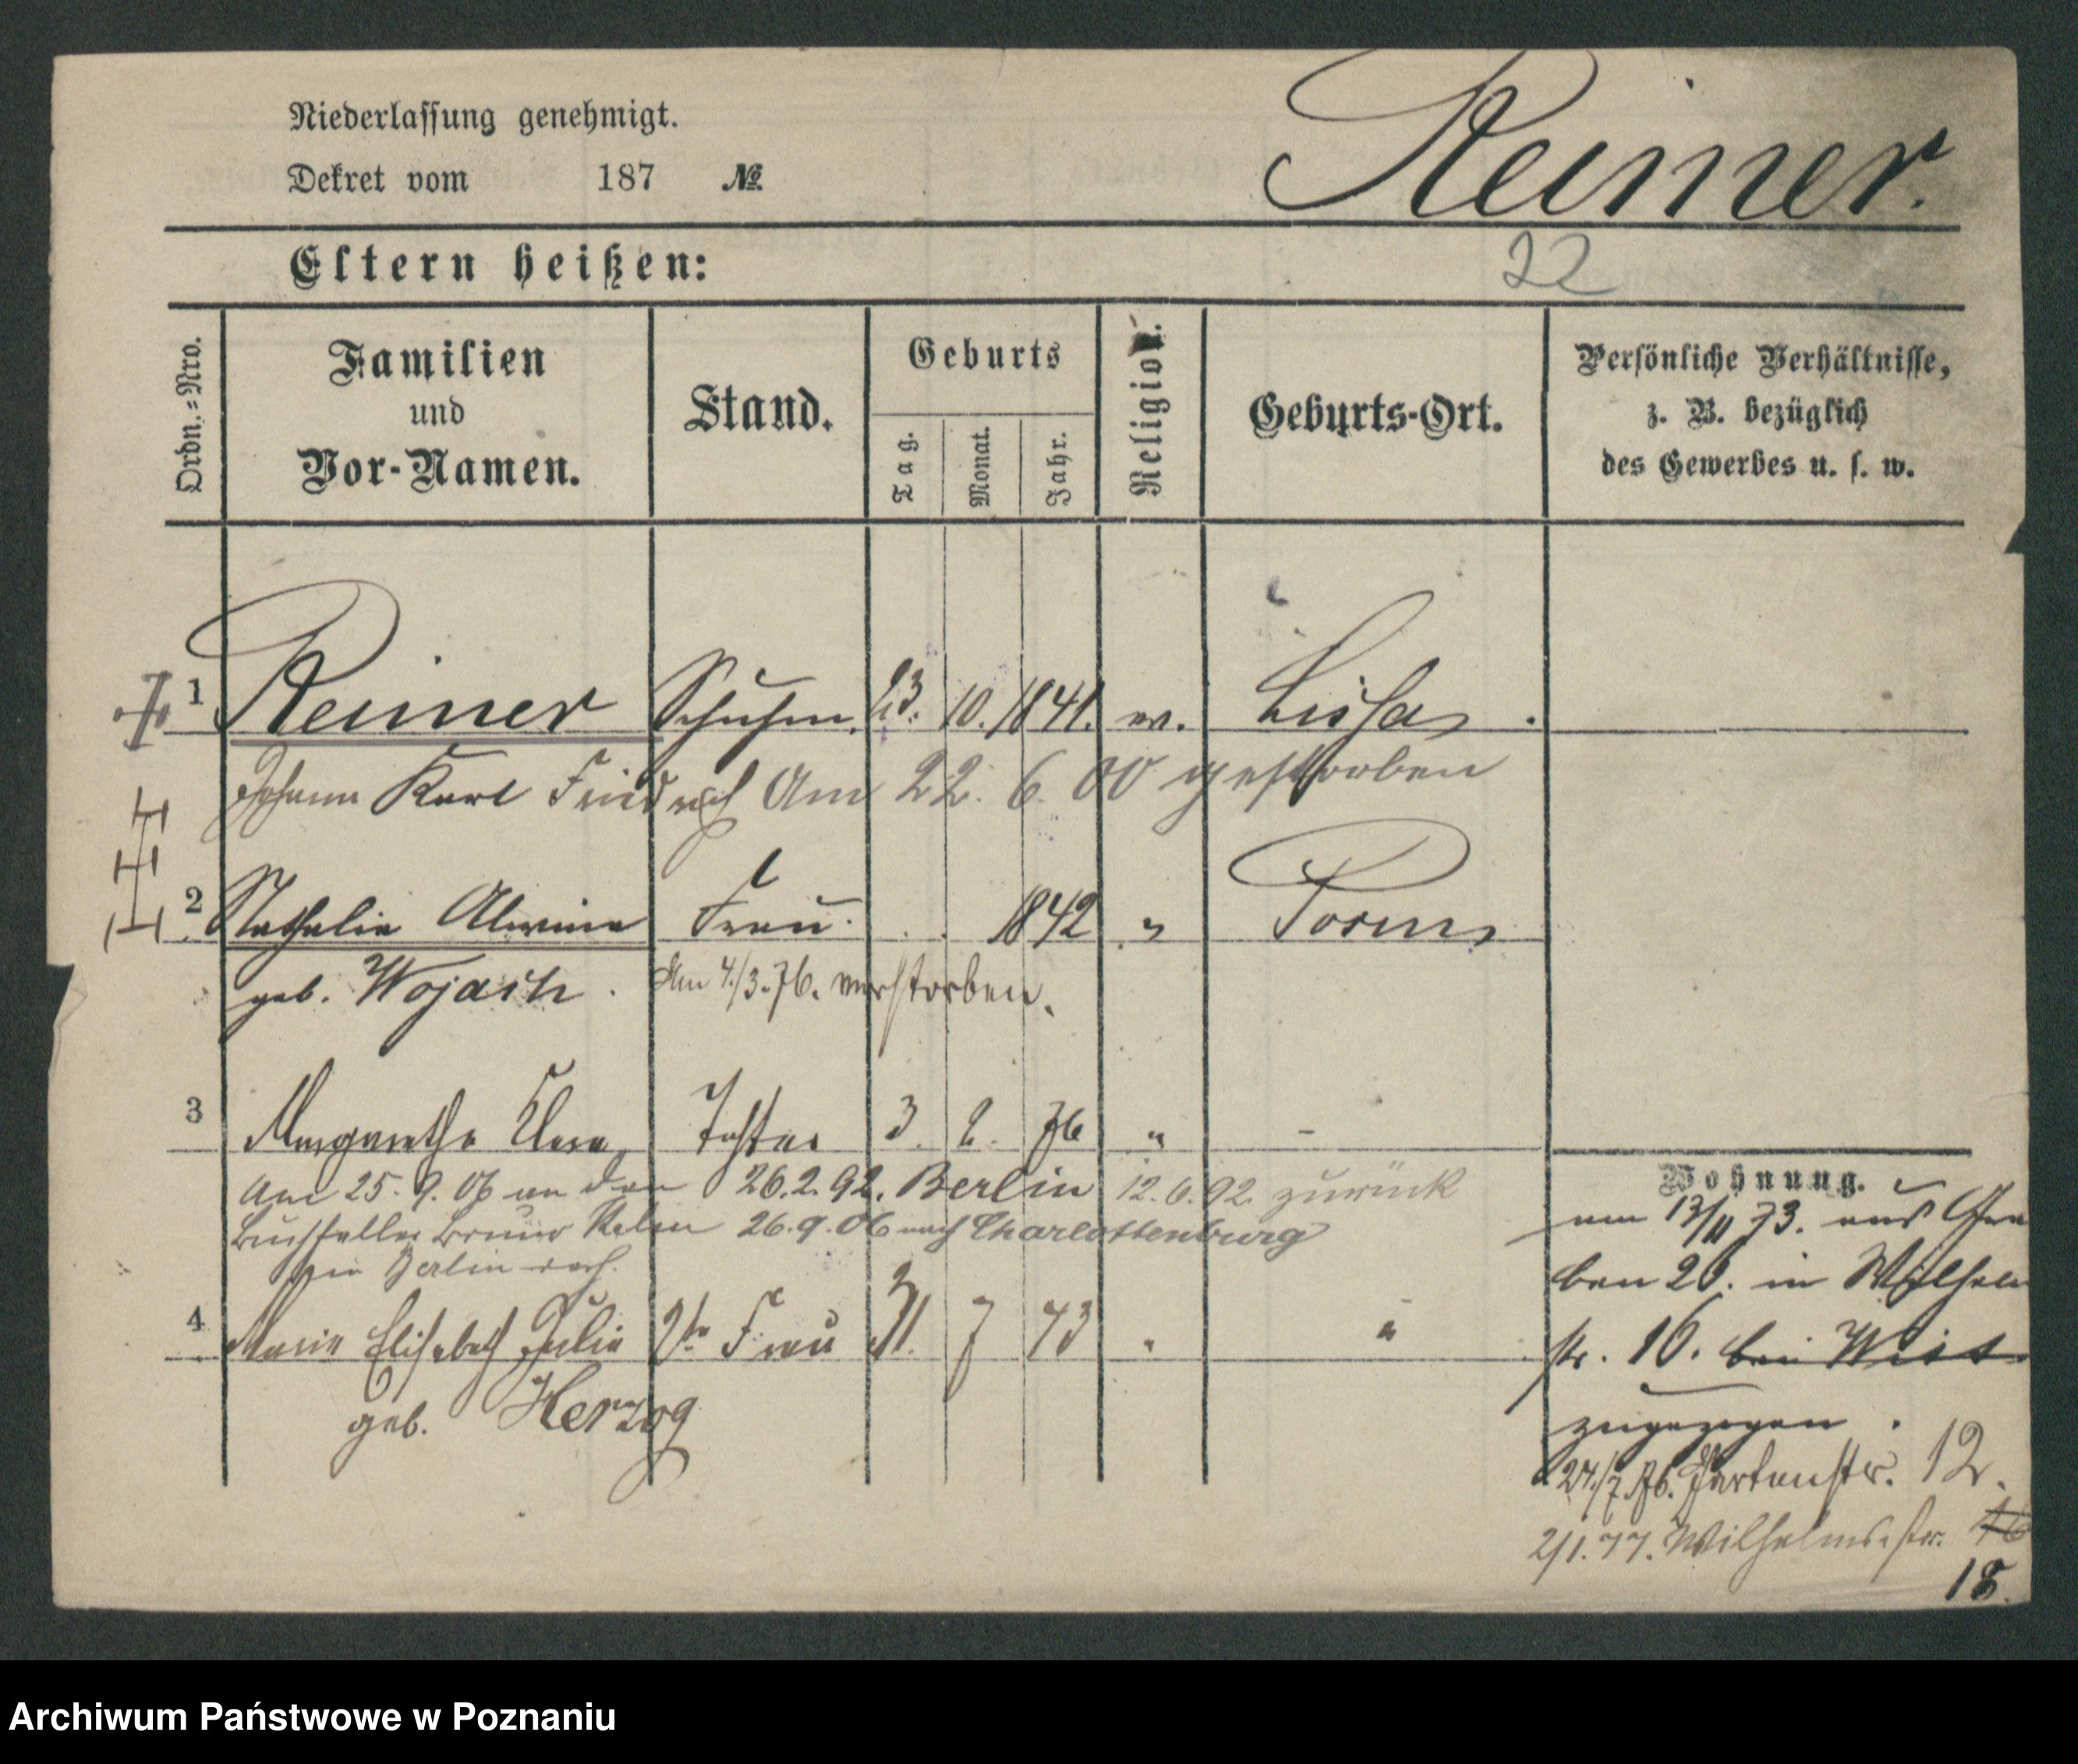 Niederlassung genehmigt.
Dekret vom 187 №
Reimer.
Eltern heißen:
22
Ordn.=Nro.
Familien
und
Vor-Namen.
Stand.
Geburts
Tag.
Monat.
Jahr.
Religion.
Geburts-Ort.
Persönliche Verhältnisse,
z. B. bezüglich
des Gewerbes u. s. w.
1 Reimer Schuhm. 23. 10. 1841. ev. Lissa.
Johann Karl Friedrich Am 22. 6. 00 gestorben
2 Nathalie Alwine Frau. 1842 " Posen
geb. Am 4./3.76. verstorben.
3 Margarethe Clara Tochter 3. 2. 76 " -
Am 25. 9. 06 an den 26.2.92. Berlin 12.6.92 zurück
Bruno 26.9.06 nach Charlottenburg
in Berlin verh.
4 Marie Elisabeth Julie 2te Frau 31. 7 " "
geb. Herzog
Wohnung.
am 13/11 73. aus Gra
ben 26. in Wilhelm
str. 16. bei
zugezogen.
27./7.76. Gartenstr. 12.
2/1.77. Wilhelmsstr. 16
18.
Archiwum Państwowe w Poznaniu